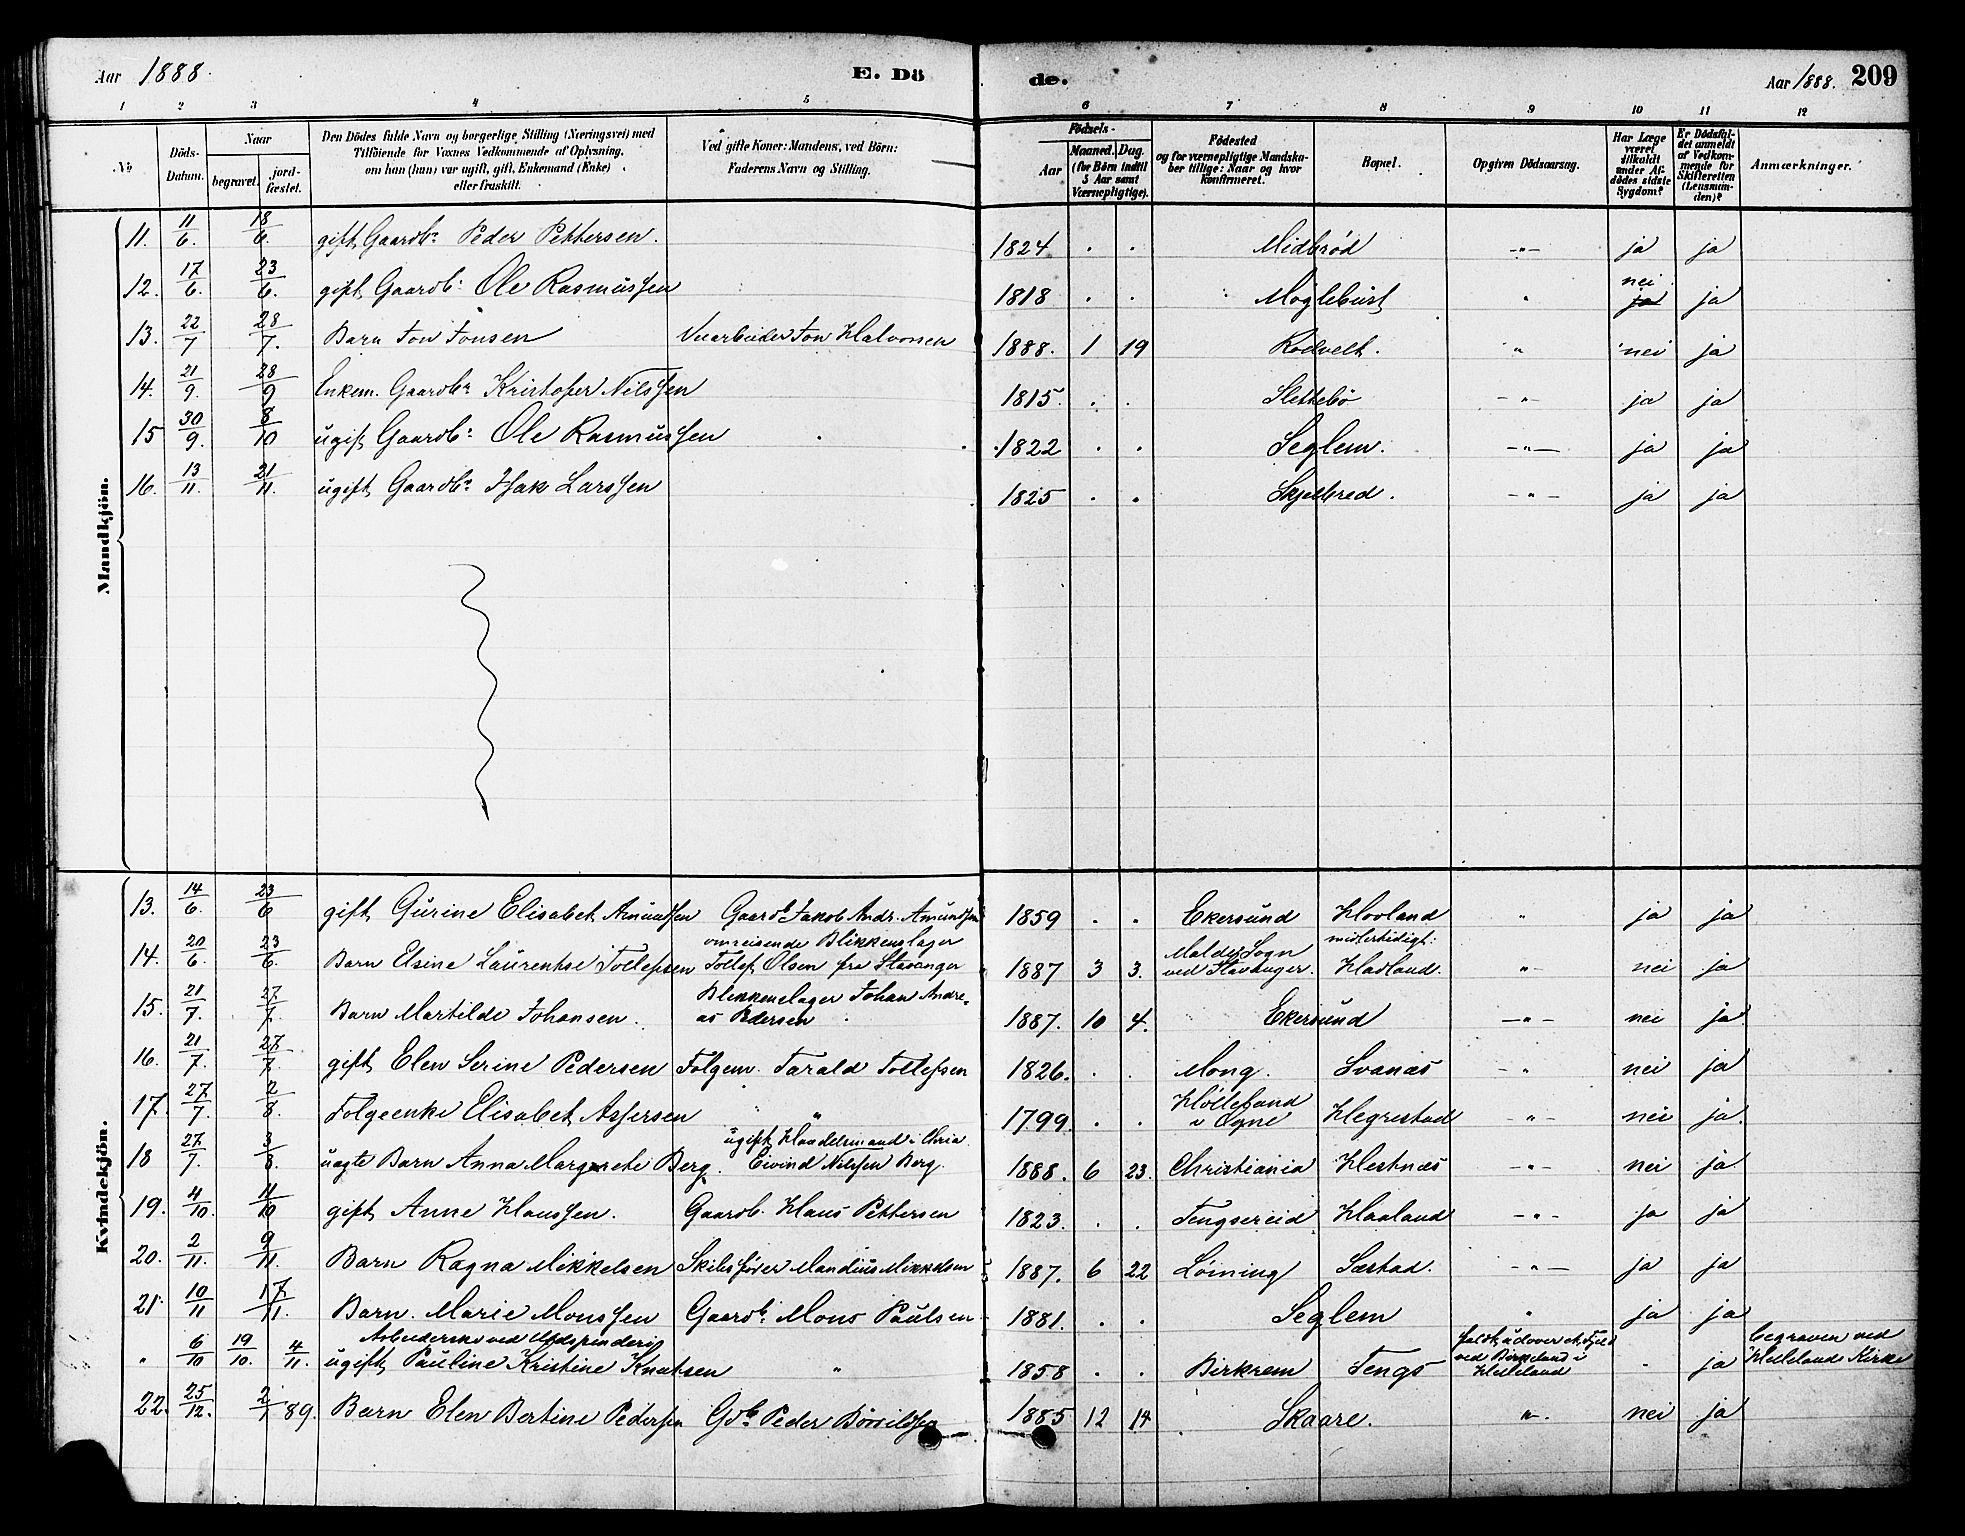 Aar 1888. E. Dö de. Aar 1888. 209
1 2 3 4 5 6 7 8 9 10 11 12
No Döds-Datum. Naar begravet. jordfæstet. Den Dödes fulde Navn og borgerlige Stilling (Næringsvei) med Tilföiende for Voxnes Vedkommende af Oplysning, om han (hun) var ugift, gift, Enkemand (Enke) eller fraskilt. Ved gifte Koner: Mandens, ved Börn: Faderens Navn og Stilling. Födsels- Aar Maaned. Dag. (for Börn indtil 5 Aar samt Værnepligtige). Födested og for værnepligtige Mandskaber tillige: Naar og hvor konfirmeret. Bopæl. Opgiven Dödsaarsag. Har Læge været tilkaldt under Afdödes sidste Sygdom? Er Dödsfaldet anmeldt af Vedkommende for Skifteretten (Lensmanden)? Anmærkninger.
Mandkjön.
11. 11/6. 18/6. gift Gaardbr Peder Pettersen. 1824 . . Midbrød -"- ja ja
12. 17/6. 23/6. gift Gaardb: Ole Rasmussen 1818 . . Møglebust " nei ja ja
13. 22/7 28/7. Barn Jon Jonsen Jon Halvorsen 1888. 1 19 Rodvelt. " nei ja
14. 21/9. 28/9 Enkem. Gaardbr Kristofer Nilssen 1815. . . Slettebø -"- ja ja
15 30/9. 8/10 ugift Gaardb: Ole Rasmussen 1822 . . Seglem. -"- ja ja
16. 13/11. 21/11. ugift Gaardbr Isak Larssen 1825 . . Skjelbred. -"- ja ja
Kvindekjön.
13. 14/6. 23/6 gift Gurine Elisabet Amundsen Gaardb. Jakob Andr. Amundsen 1859 . . Ekersund Hovland " ja ja
14. 20/6. 23/6. Barn Elsine Laurentse Tollefsen omreisende Blikkenslager Tollef Olsen fra Stavanger 1887 3 3. Malde Sogn ved Stavanger. midlertidigt: Hadland. " nei ja
15. 21/7. 27/7. Barn Martilde Johansen. Blikkenslager Johan Andreas Pedersen 1887. 10 4. Ekersund -"- nei ja
16. 21/7. 27/7. gift Elen Serine Pedersen Folgem. Tarald Tollefsen 1826. . . Mong. Svanæs -"- nei ja
17. 27/7. 2/8. Folgeenke Elisabet Assersen " 1799. . . i Ogne Hegrestad -"- nei ja.
18 27/7. 3/8. uægte Barn Anna Margrete Berg. ugift Handelsmand i Chria. Eivind Nilssen Berg. 1888. 6 23. Christiania Hestnæs -"- nei ja
19. 4/10. 11/10 gift Anne Hanssen. Gaardb. Hans Pettersen 1823. . . Tengsereid Haaland -"- ja ja
20. 2/11. 9/11. Barn Ragna Mikkelsen Skibsfører Mandius Mikkelsen 1887. 6 22 Løining Sæstad. -"- ja ja
21. 10/11 17/11. Barn Marie Monssen Gaardb. Mons Paulsen 1881. . . Seglem " ja ja
" 6/10 19/10. 4/11. Arbeiderske ved Uldspinderij ugift Pauline Kristine Knutsen " 1858 . . Birkrem Tengs faldt udover et Fjeld ved Birkeland i Helleland . ja begraven ved Hellelands Kirke
22. 25/12. 2/1 89. Barn Elen Bertine Pedersen Gdbr Peder 1885 12 14 Skaare. " nei ja